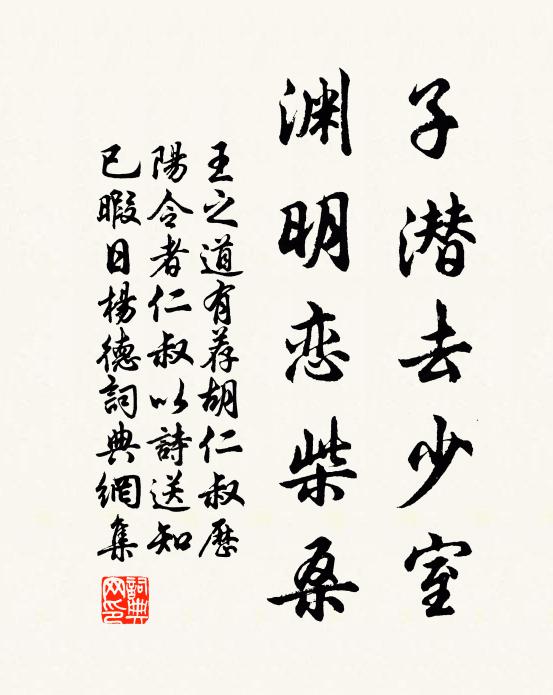 子潜去少室
渊明恋柴桑
王之道有荐胡仁叔歷
陽令者仁叔以詩送知
已暇日楊德詞典網集
詞典網印